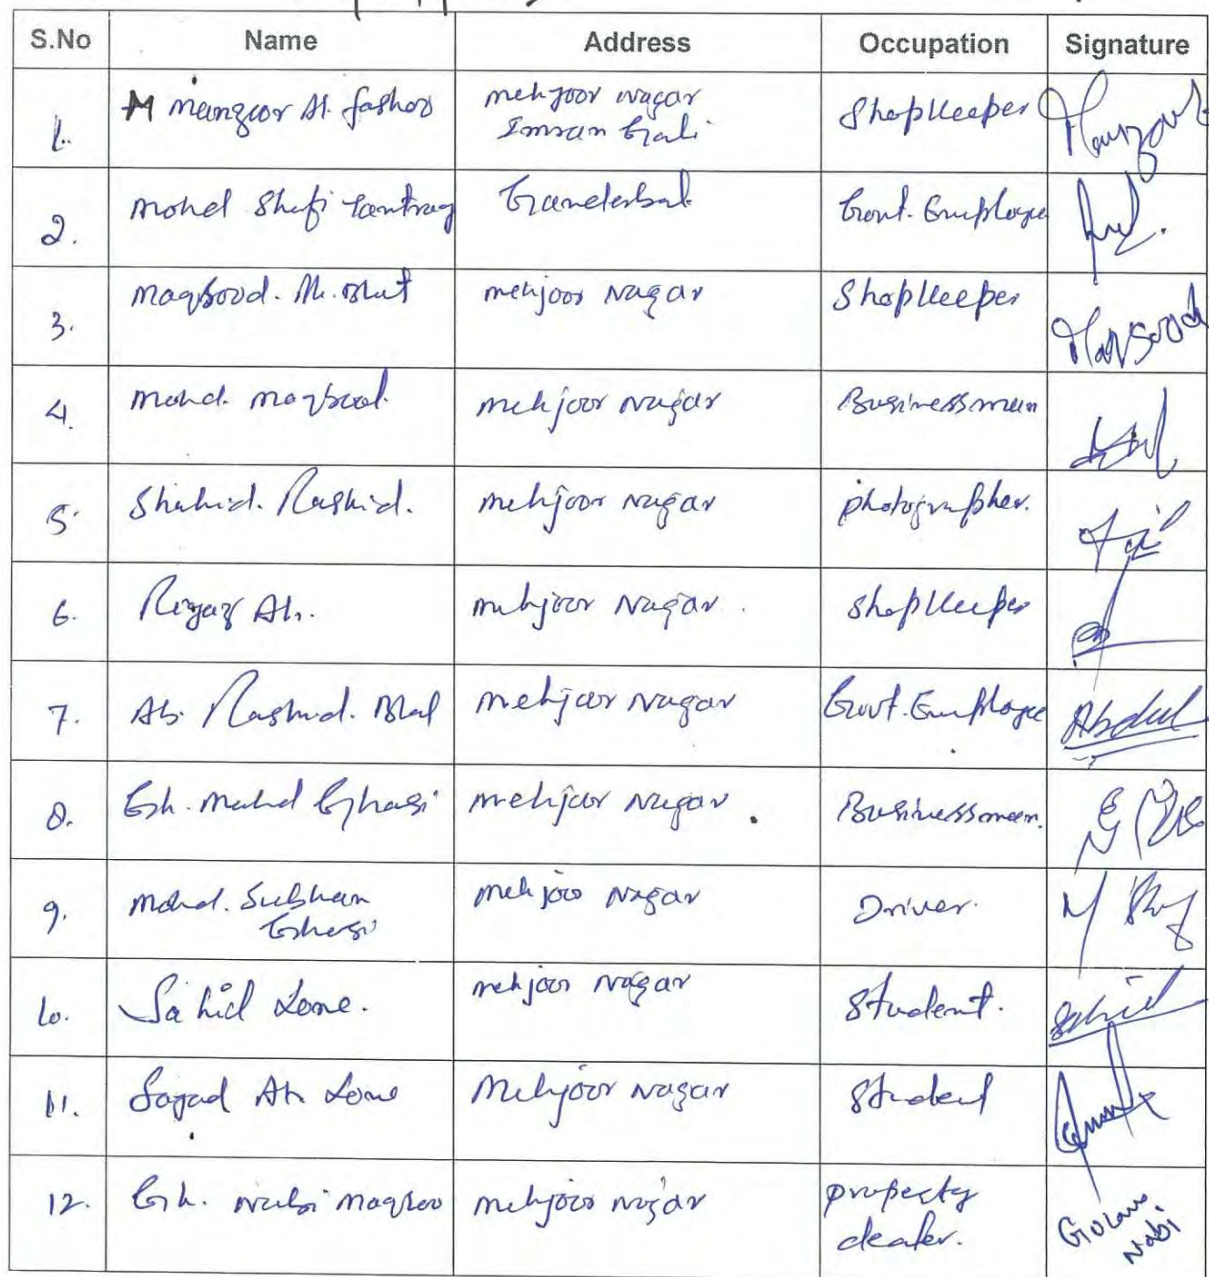 S.No Name Address Occupation Signature
1. M manzoor Ah. mehjoor nagar Shopkeeper
Imran Gali
2. Mohd Shafi Tantray Ganderbal Govt. Employee
3. Maqsood. Ah. Bhat mehjoor Nagar Shopkeeper Maqsood
4. Mohd. maqbool mehjoor Nagar Businessman
5. Shahid. Rashid. mehjoor Nagar photographer.
6. Riyaz Ah. mehjoor Nagar. Shopkeeper
7. Ab. Rashid. mehjoor Nagar Govt. Employee Abdul
8. Gh. Mohd mehjoor Nagar. Businessman.
9. Mohd. Subhan mehjoor Nagar Driver.
10. Sahil Lone. mehjoor Nagar Student. Sahil
11. Sajad Ah Lone Mehjoor Nagar Student
12. Gh. Nabi mehjoor Nagar property
dealer.
Nabi